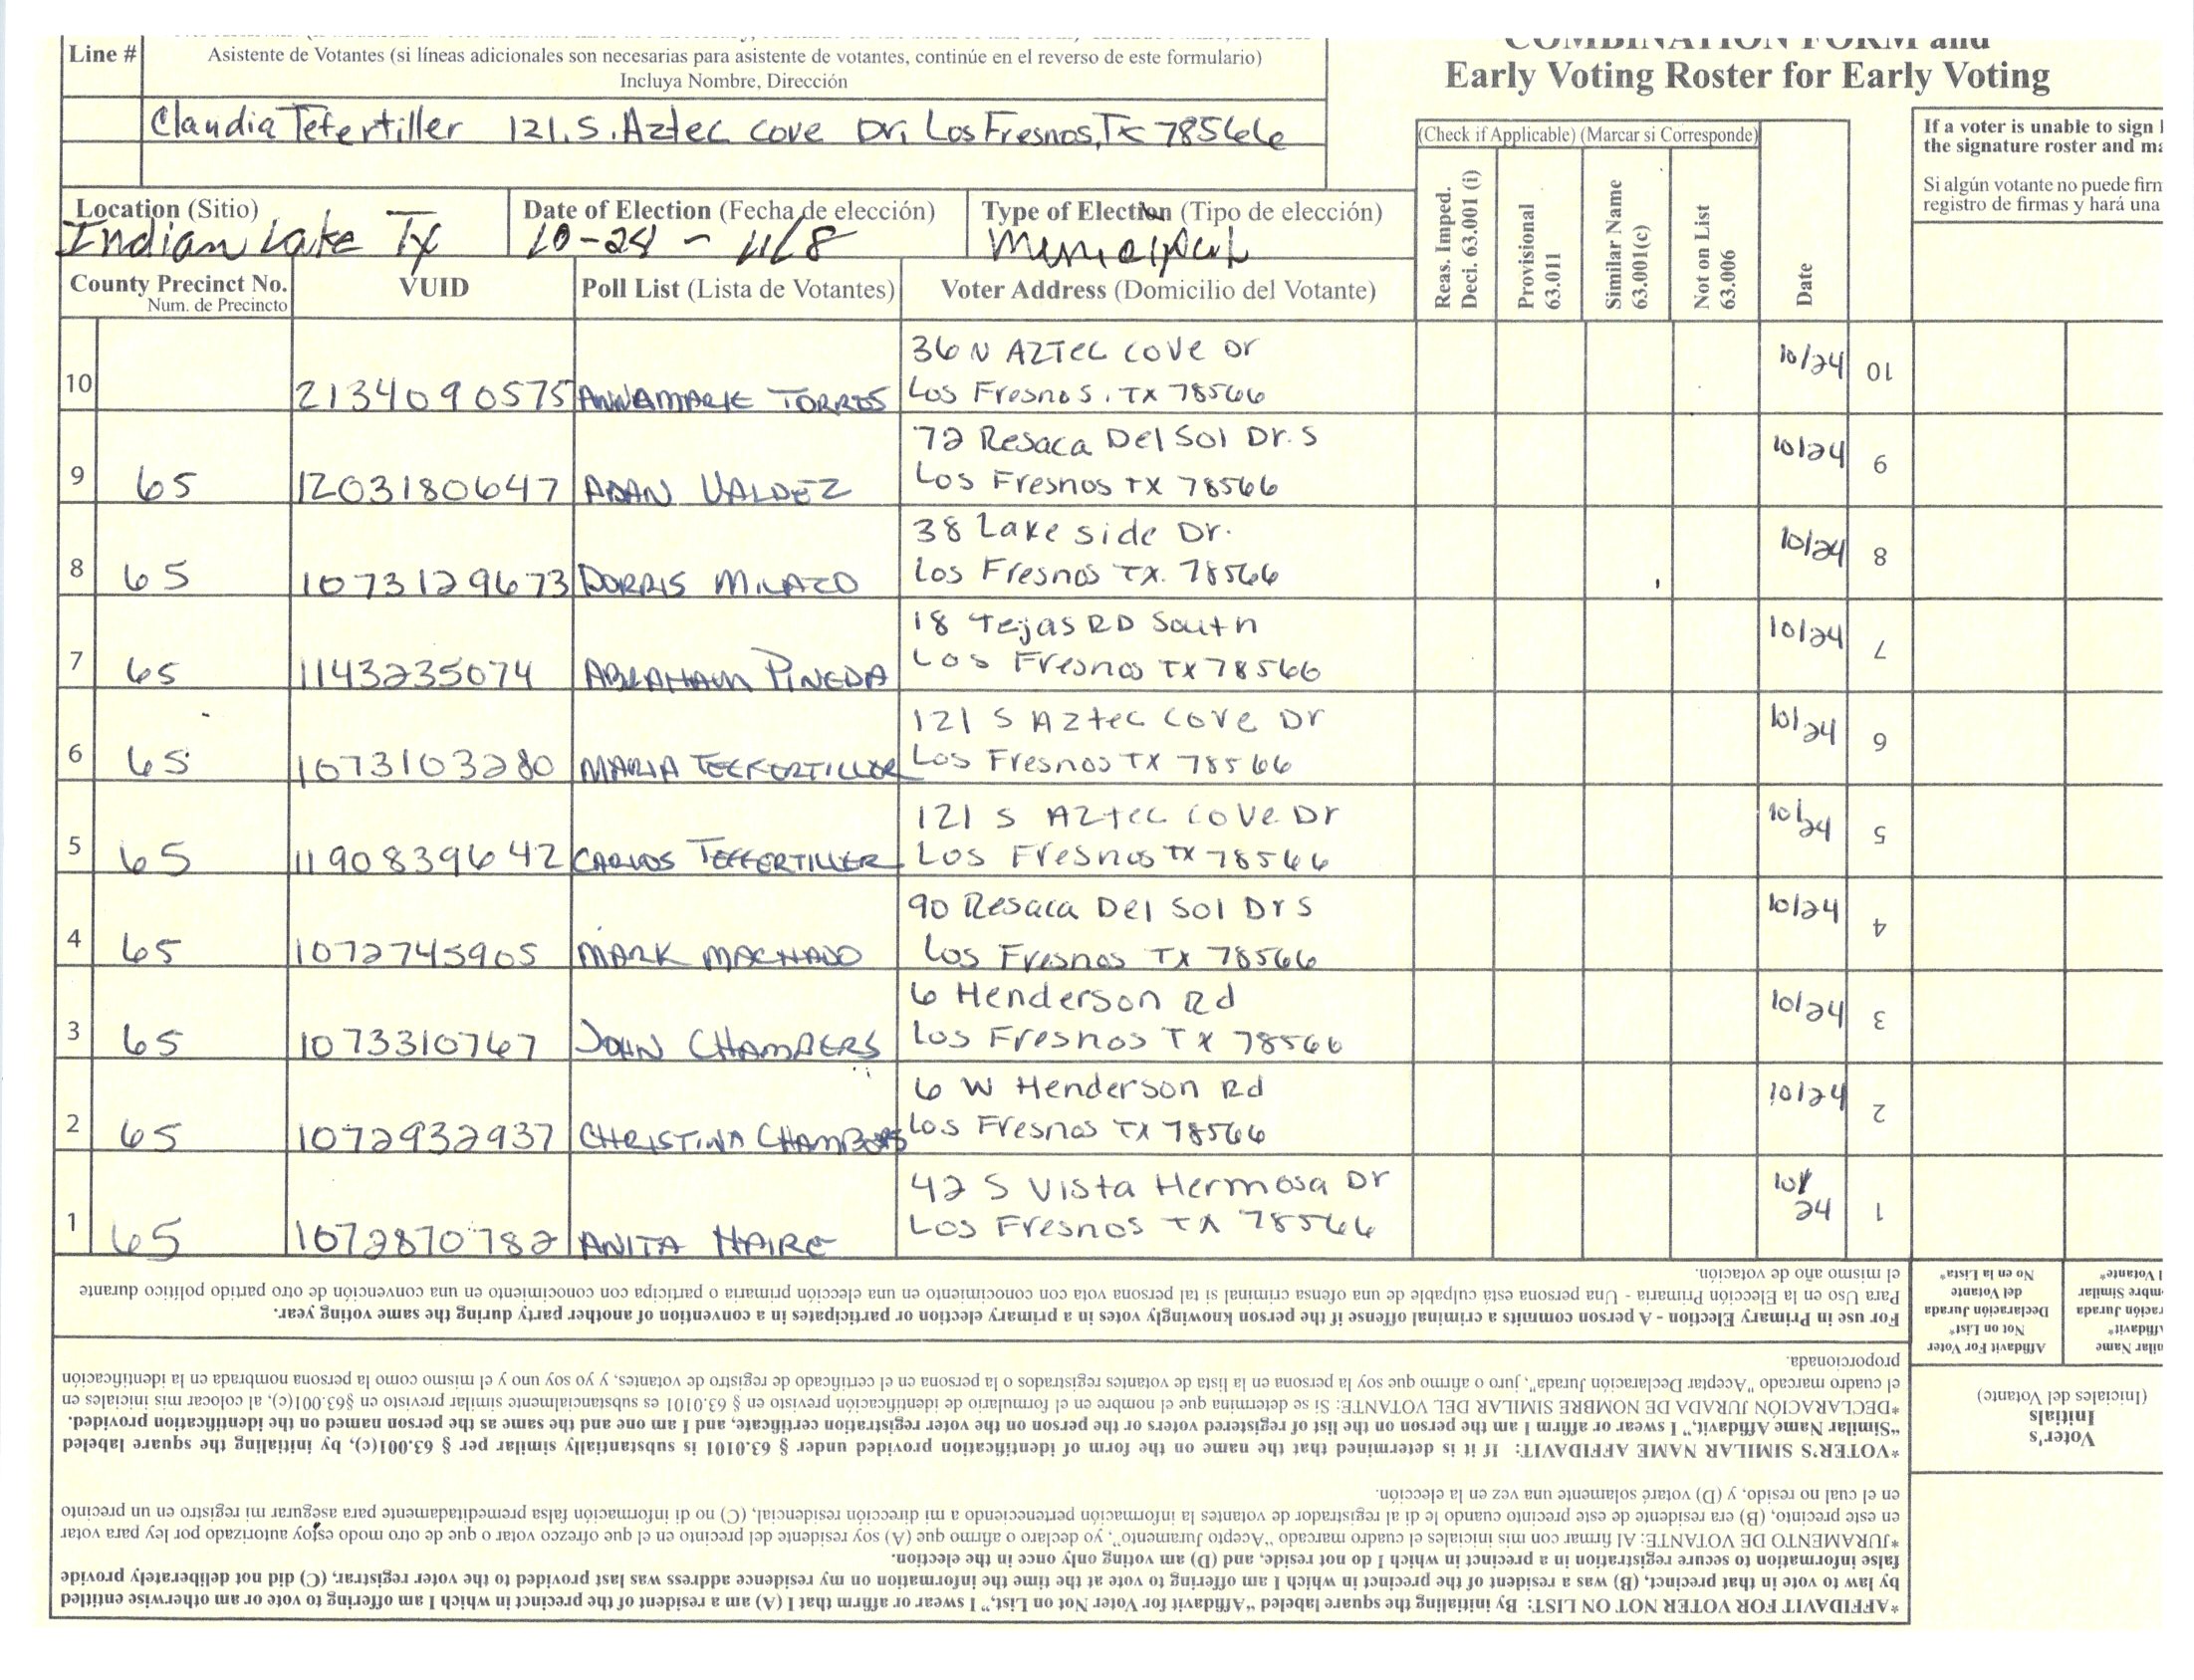 COMBINATION FORM and
Early Voting Roster for Early Voting
Line #
Asistente de Votantes (si líneas adicionales son necesarias para asistente de votantes, continúe en el reverso de este formulario)
Incluya Nombre, Dirección
Claudia Tefertiller 121. S. Aztec Cove Dr, Los Fresnos, Tx 78566
(Check if Applicable) (Marcar si Corresponde)
If a voter is unable to sign
the signature roster and
Si algún votante no puede
registro de firmas y hará una
Location (Sitio)
Indian Lake Tx
Date of Election (Fecha de elección)
10-24 - 11/8
Type of Election (Tipo de elección)
Municipal
County Precinct No.
Num. de Precincto
VUID
Poll List (Lista de Votantes)
Voter Address (Domicilio del Votante)
Reas. Imped.
Deci. 63.001 (i)
Provisional
63.011
Similar Name
63.001(c)
Not on List
63.006
Date
10 2134090575 ANNAMARIE TORRES 36 N AZTEC COVE Dr
Los Fresnos, TX 78566 10/24 10
9 65 1203180647 ADAN VALDEZ 72 Resaca Del Sol Dr. S
Los Fresnos TX 78566 10/24 9
8 65 1073129673 DORRIS MILAZO 38 Lake side Dr.
Los Fresnos TX. 78566 10/24 8
7 65 1143235074 ABRAHAM PINEDA 18 Tejas RD South
Los Fresnos TX 78566 10/24 7
6 65 1073103280 MARIA TEEFERTILLER 121 S Aztec Cove Dr
Los Fresnos TX 78566 10/24 6
5 65 1190839642 CARLOS TEFFERTILLER 121 S Aztec Cove Dr
Los Fresnos TX 78566 10/24 5
4 65 1072745905 MARK MACHADO 90 Resaca Del Sol Dr S
Los Fresnos TX 78566 10/24 4
3 65 1073310767 JOHN CHAMBERS 6 Henderson Rd
Los Fresnos TX 78566 10/24 3
2 65 1072932937 CHRISTINA CHAMBERS 6 W Henderson Rd
Los Fresnos TX 78566 10/24 2
1 65 1072870782 ANITA HAIRE 42 S Vista Hermosa Dr
Los Fresnos TX 78566 10/24 1
*AFFIDAVIT FOR VOTER NOT ON LIST: By initialing the square labeled “Affidavit for Voter Not on List,” I swear or affirm that I (A) am a resident of the precinct in which I am offering to vote or am otherwise entitled
by law to vote in that precinct, (B) was a resident of the precinct in which I am offering to vote at the time the information on my residence address was last provided to the voter registrar, (C) did not deliberately provide
false information to secure registration in a precinct in which I do not reside, and (D) am voting only once in the election.
*JURAMENTO DE VOTANTE: Al firmar con mis iniciales el cuadro marcado “Acepto Juramento”, yo declaro o afirmo que (A) soy residente del precinto en el que ofrezco votar o que de otro modo estoy autorizado por ley para votar
en este precinto, (B) era residente de este precinto cuando le di al registrador de votantes la información perteneciendo a mi dirección residencial, (C) no di información falsa premeditadamente para asegurar mi registro en un precinto
en el cual no resido, y (D) votaré solamente una vez en la elección.
*VOTER'S SIMILAR NAME AFFIDAVIT: If it is determined that the name on the form of identification provided under § 63.0101 is substantially similar per § 63.001(c), by initialing the square labeled
“Similar Name Affidavit,” I swear or affirm I am the person on the list of registered voters or the person on the voter registration certificate, and I am one and the same as the person named on the identification provided.
*DECLARACIÓN JURADA DE NOMBRE SIMILAR DEL VOTANTE: Si se determina que el nombre en el formulario de identificación previsto en § 63.0101 es substancialmente similar previsto en §63.001(c), al colocar mis iniciales en
el cuadro marcado “Aceptar Declaración Jurada”, juro o afirmo que soy la persona en la lista de votantes registrados o la persona en el certificado de registro de votantes, y yo soy uno y el mismo como la persona nombrada en la identificación
proporcionada.
For use in Primary Election - A person commits a criminal offense if the person knowingly votes in a primary election or participates in a convention of another party during the same voting year.
Para Uso en la Elección Primaria - Una persona está culpable de una ofensa criminal si tal persona vota con conocimiento en una elección primaria o participa con conocimiento en una convención de otro partido político durante
el mismo año de votación.
Voter's
Initials
(Iniciales del Votante)
Affidavit For Voter
Not on List*
Declaración Jurada
del Votante
No en la Lista*
Name
Affidavit*
Jurada
Similar
Votante*